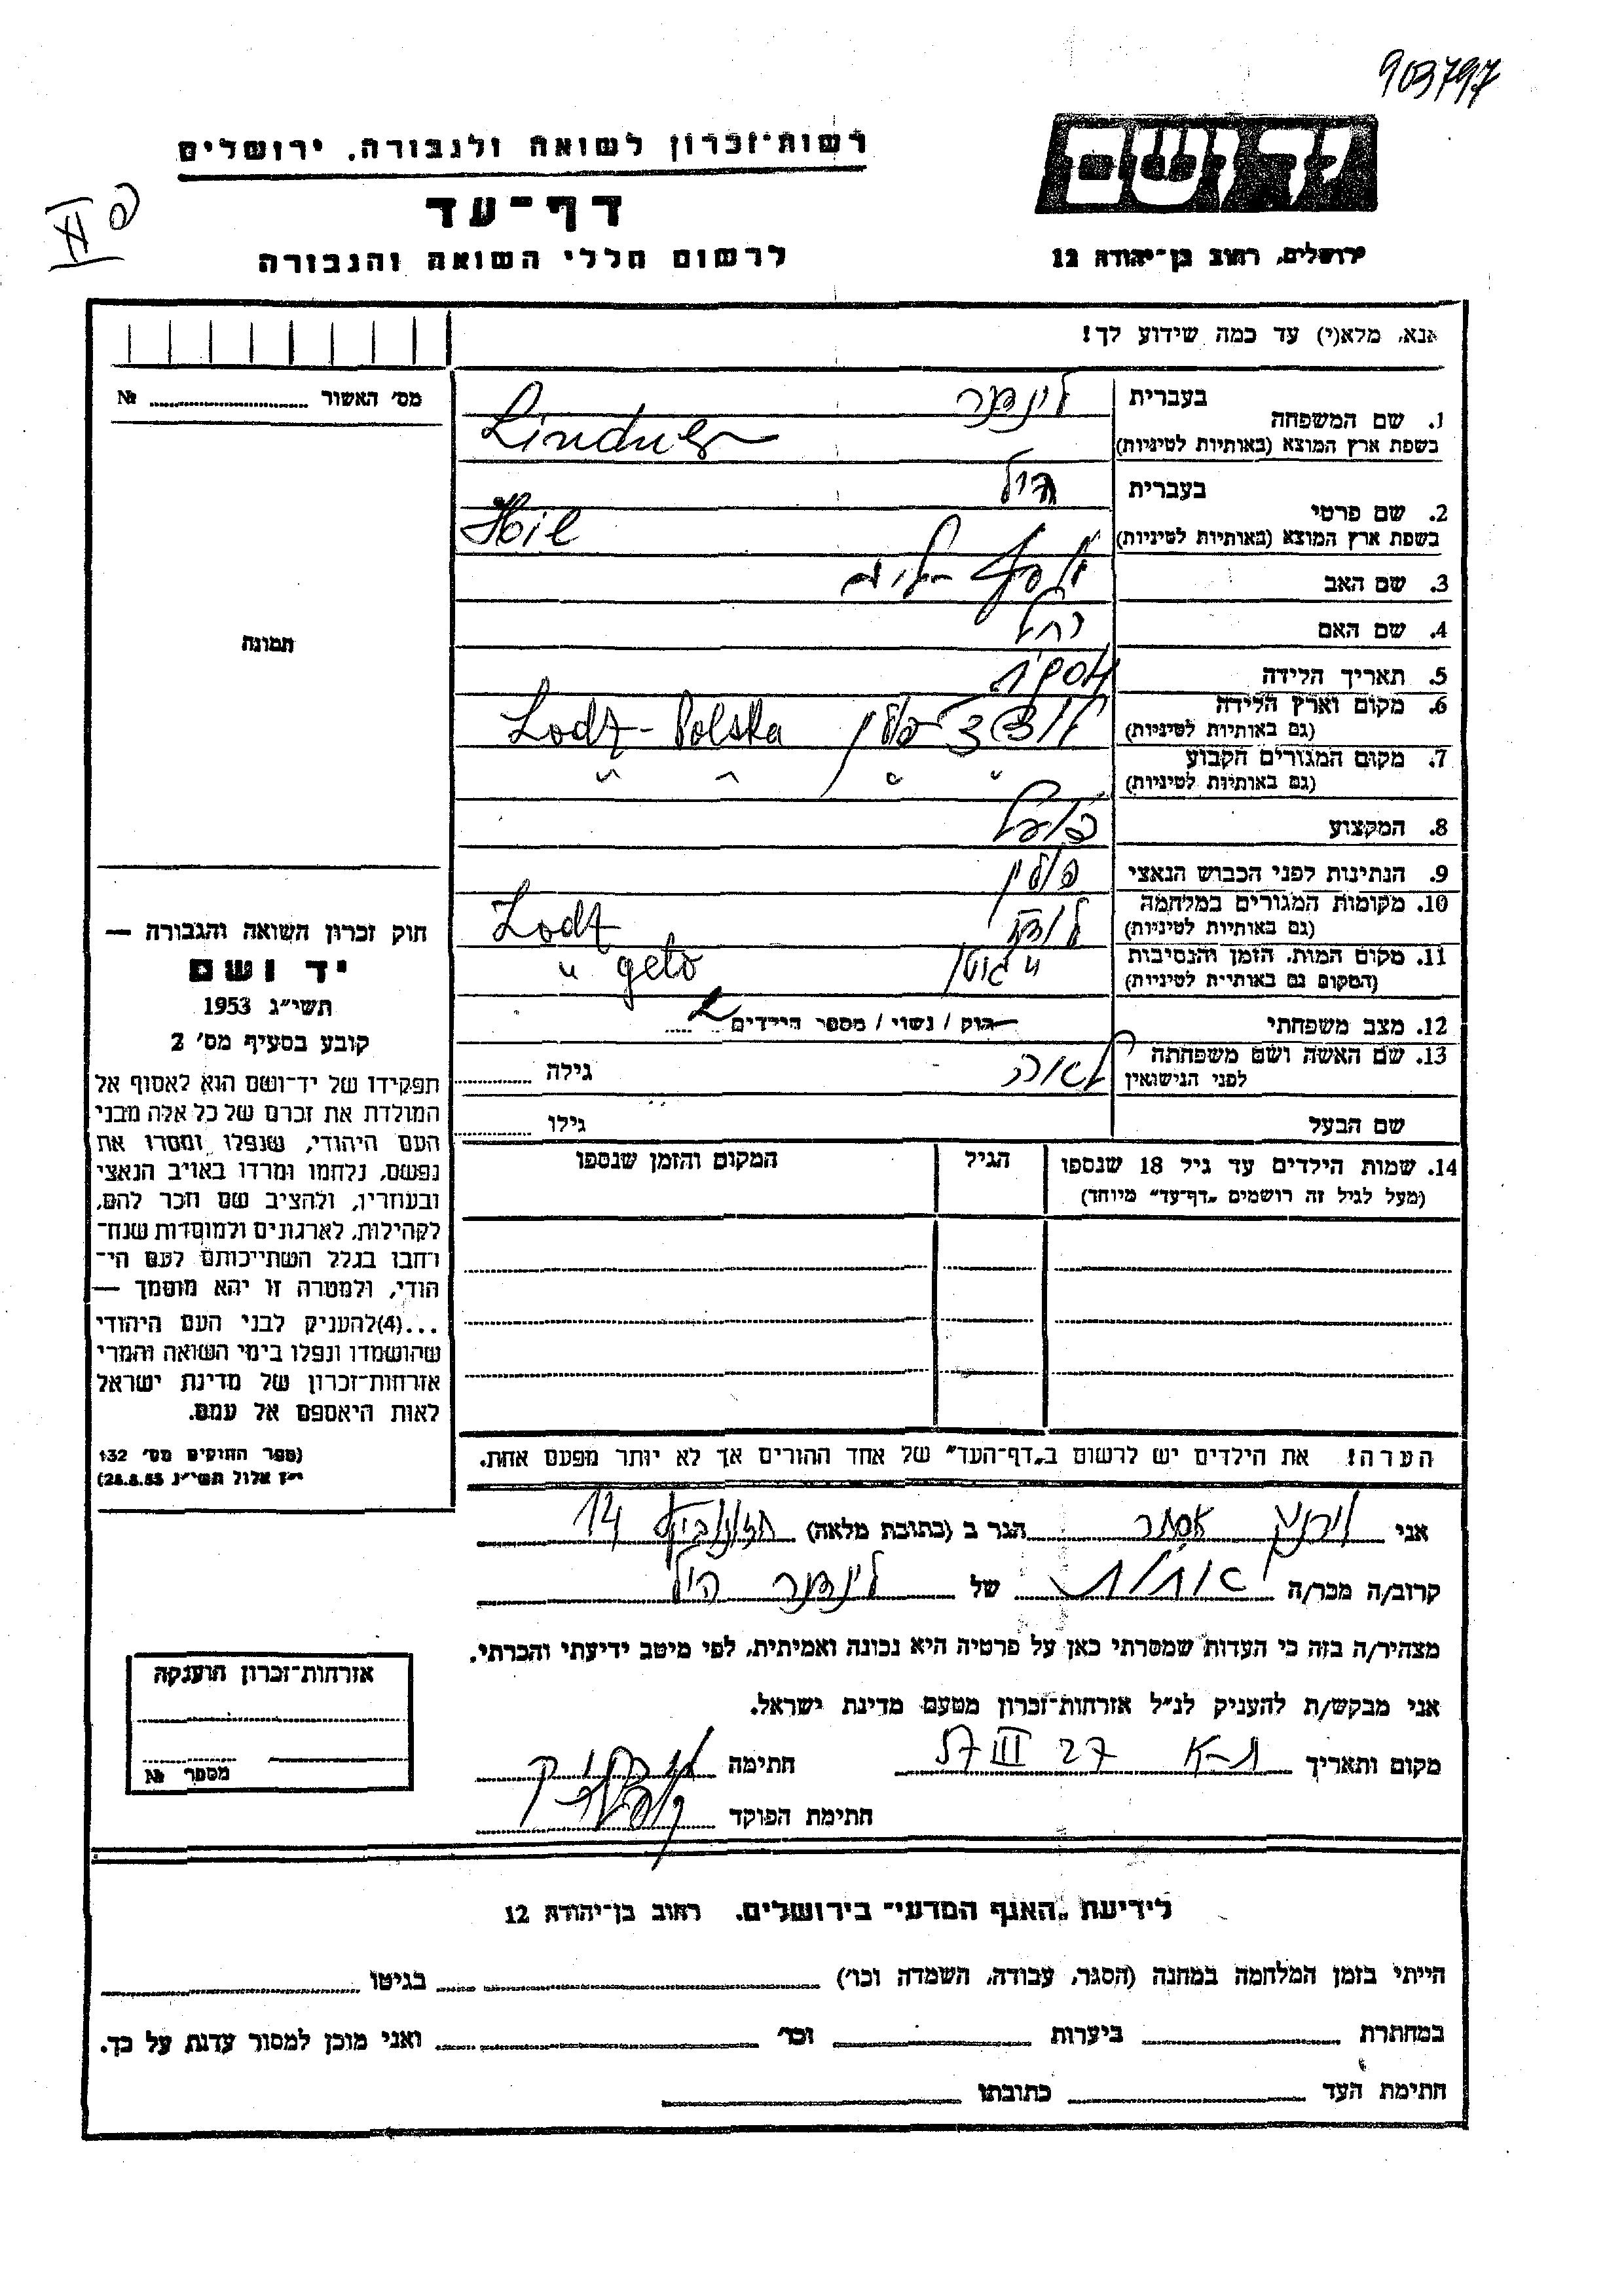 903797
יד ושם
רשות־זכרון לשואה ולגבורה, ירושלים
דף־עד
לרשום חללי השואה והגבורה
ירושלים, רחוב בן־יהודה 12
אנא, מלא(י) עד כמה שידוע לך!
מס׳ האשור № 
1. שם המשפחה
בעברית לינדנר
בשפת ארץ המוצא (באותיות לטיניות) Lindner
2. שם פרטי
בעברית היל
בשפת ארץ המוצא (באותיות לטיניות) Hil
3. שם האב
4. שם האם רחל
5. תאריך הלידה
6. מקום וארץ הלידה
(גם באותיות לטיניות) לודז פולין Lodz - Polska
7. מקום המגורים הקבוע
(גם באותיות לטיניות) " " " "
8. המקצוע פועל
9. הנתינות לפני הכבוש הנאצי פולין
10. מקומות המגורים במלחמה
(גם באותיות לטיניות) לודז Lodz
11. מקום המות, הזמן והנסיבות
(המקום גם באותיות לטיניות) " גיטו " geto
12. מצב משפחתי רווק / נשוי / מספר הילדים 2
13. שם האשה ושם משפחתה
לפני הנישואין לאה גילה
שם הבעל גילו
14. שמות הילדים עד גיל 18 שנספו
(מעל לגיל זה רושמים „דף־עד״ מיוחד)
הגיל
המקום והזמן שנספו
תמונה
חוק זכרון השואה והגבורה —
יד ושם
תשי״ג 1953
קובע בסעיף מס׳ 2
תפקידו של יד־ושם הוא לאסוף אל
המולדת את זכרם של כל אלה מבני
העם היהודי, שנפלו ומסרו את
נפשם, נלחמו ומרדו באויב הנאצי
ובעוזריו, ולהציב שם וזכר להם,
לקהילות, לארגונים ולמוסדות שנח־
רבו בגלל השתייכותם לעם הי־
הודי, ולמטרה זו יהא מוסמך —
...(4)להעניק לבני העם היהודי
שהושמדו ונפלו בימי השואה והמרי
אזרחות־זכרון של מדינת ישראל
לאות היאספם אל עמם.
(ספר החוקים מס׳ 132
י״ז אלול תשי״ג 28.8.53)
הערה! את הילדים יש לרשום ב„דף־העד״ של אחד ההורים אך לא יותר מפעם אחת.
אני אסתר הגר ב (כתובת מלאה) 14
קרוב/ה מכר/ה של לינדנר היל
מצהיר/ה בזה כי העדות שמסרתי כאן על פרטיה היא נכונה ואמיתית, לפי מיטב ידיעתי והכרתי.
אני מבקש/ת להעניק לנ״ל אזרחות־זכרון מטעם מדינת ישראל.
מקום ותאריך ת-א 27 III 57 חתימה
חתימת הפוקד
אזרחות־זכרון הוענקה
מספר №
לידיעת „האגף המדעי״ בירושלים, רחוב בן־יהודה 12
הייתי בזמן המלחמה במחנה (הסגר, עבודה, השמדה וכו׳) בגיטו
במחתרת ביערות וכו׳ ואני מוכן למסור עדות על כך.
חתימת העד כתובתו